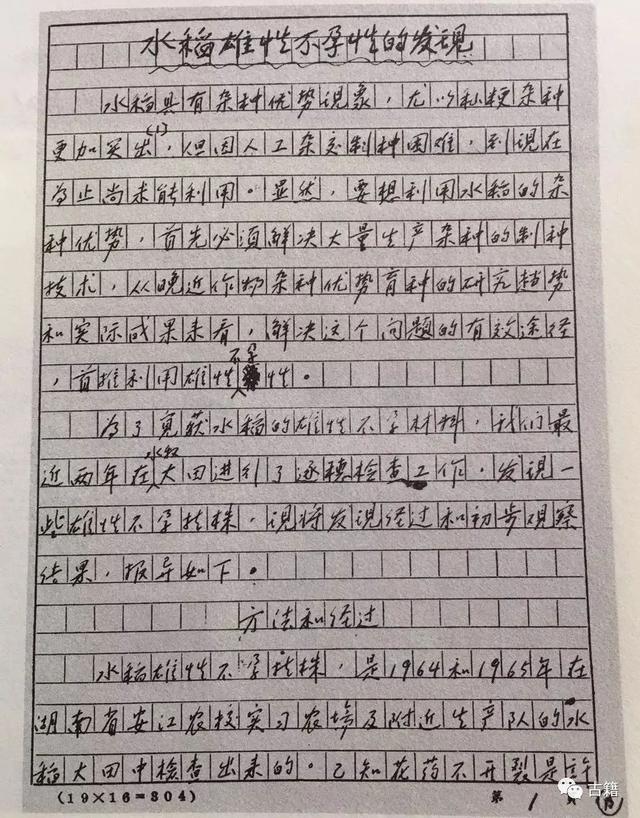 水稻雄性不孕性的发现
水稻具有杂种优势現象，尤以籼粳杂种
更加突出(1)，但因人工杂交制种困难，到現在
为止尚未能利用。显然，要想利用水稻的杂
种优势，首先必須解决大量生产杂种的制种
技术，从晚近作物杂种优势育种的研究趋势
和实际成果来看，解决这个问題的有效途径
，首推利用雄性不孕性。
为了覓获水稻的雄性不孕材料，我们最
近两年在水稻大田进行了逐穗检查工作，发現一
些雄性不孕植株，現将发現经过和初步观察
结果，报导如下。
方法和经过
水稻雄性不孕植株，是1964和1965年在
湖南省安江农校实习农場及附近生产队的水
稻大田中检查出来的。已知花药不开裂是許
(19×16=304)
第 1 頁
古籍